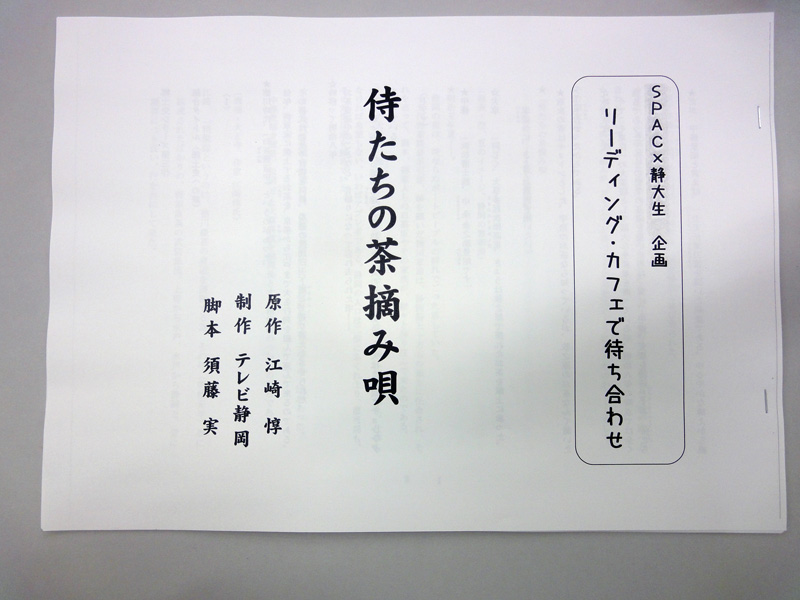 SPAC×静大生　企画
リーディング・カフェで待ち合わせ
侍たちの茶摘み唄
原作　江崎　惇
制作　テレビ静岡
脚本　須藤　実